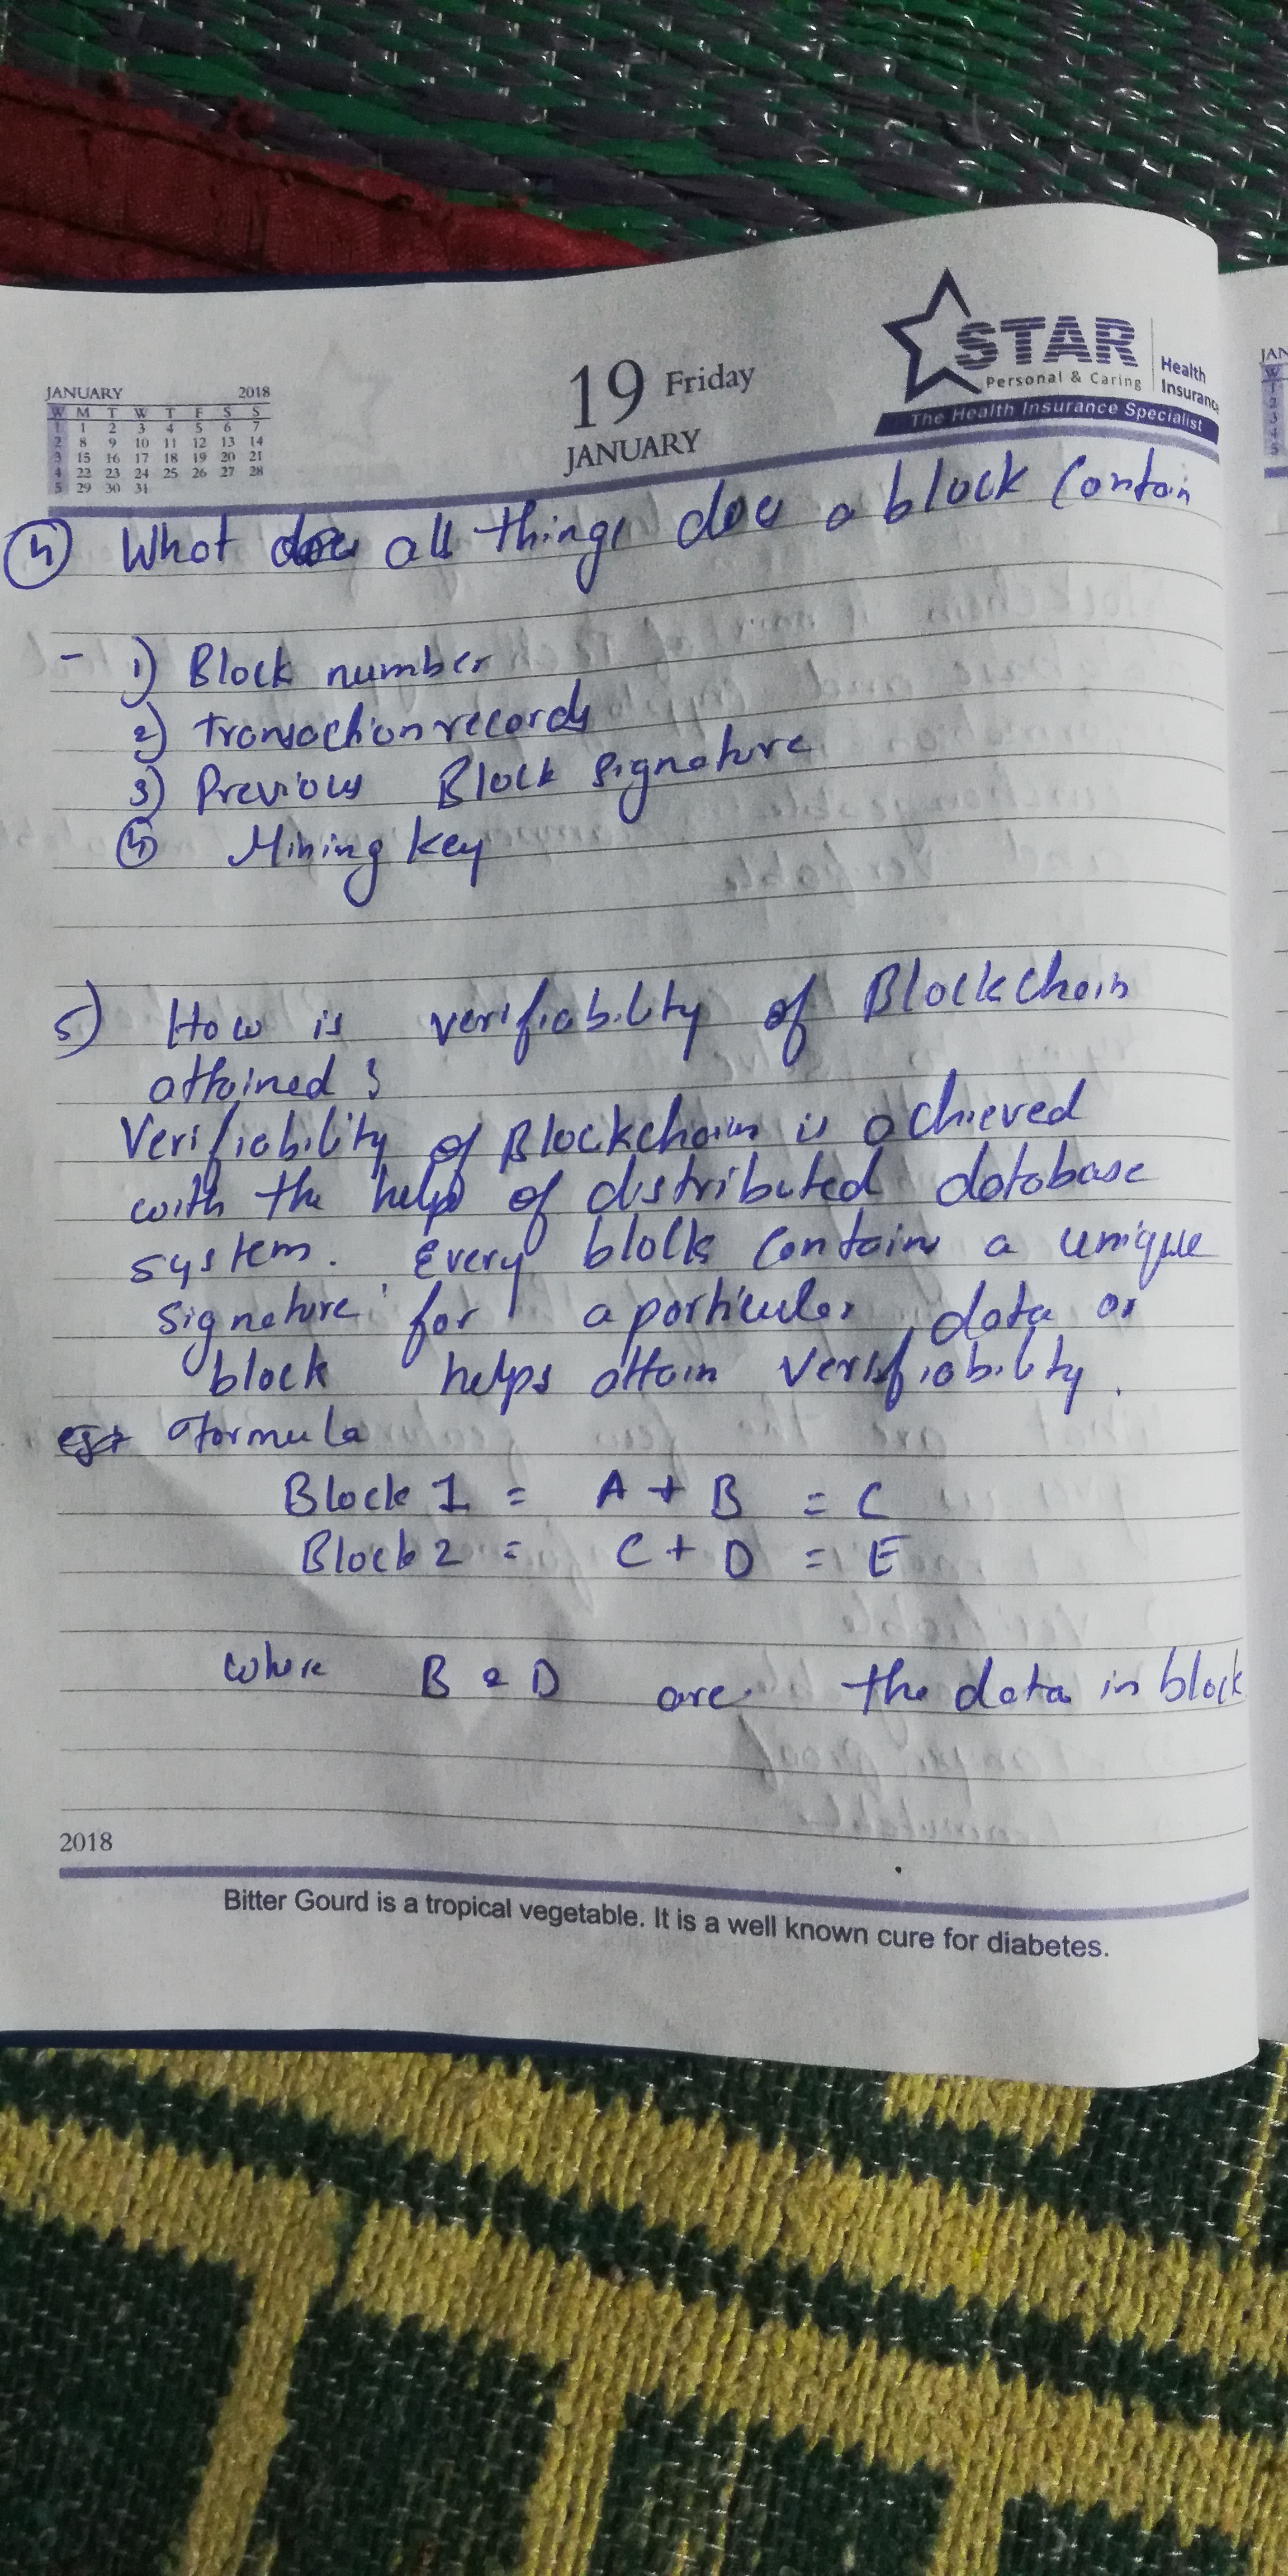 JANUARY 2018
W M T W T F S S
1 1 2 3 4 5 6 7
2 8 9 10 11 12 13 14
3 15 16 17 18 19 20 21
4 22 23 24 25 26 27 28
5 29 30 31
19 Friday
JANUARY
STAR
Personal & Caring
Health
Insurance
The Health Insurance Specialist
4) What all things does a block contain
- 1) Block number
2) Transaction records
3) Previous Block signature
4) Mining key
5) How is verifiability of Blockchain
attained ?
Verifiability of Blockchain is achieved
with the help of distributed database
system. Every block contains a unique
signature for a particular data or
block helps attain verifiability.
Formula
Block 1 = A + B = C
Block 2 = C + D = E
where B & D are the data in block
2018
Bitter Gourd is a tropical vegetable. It is a well known cure for diabetes.